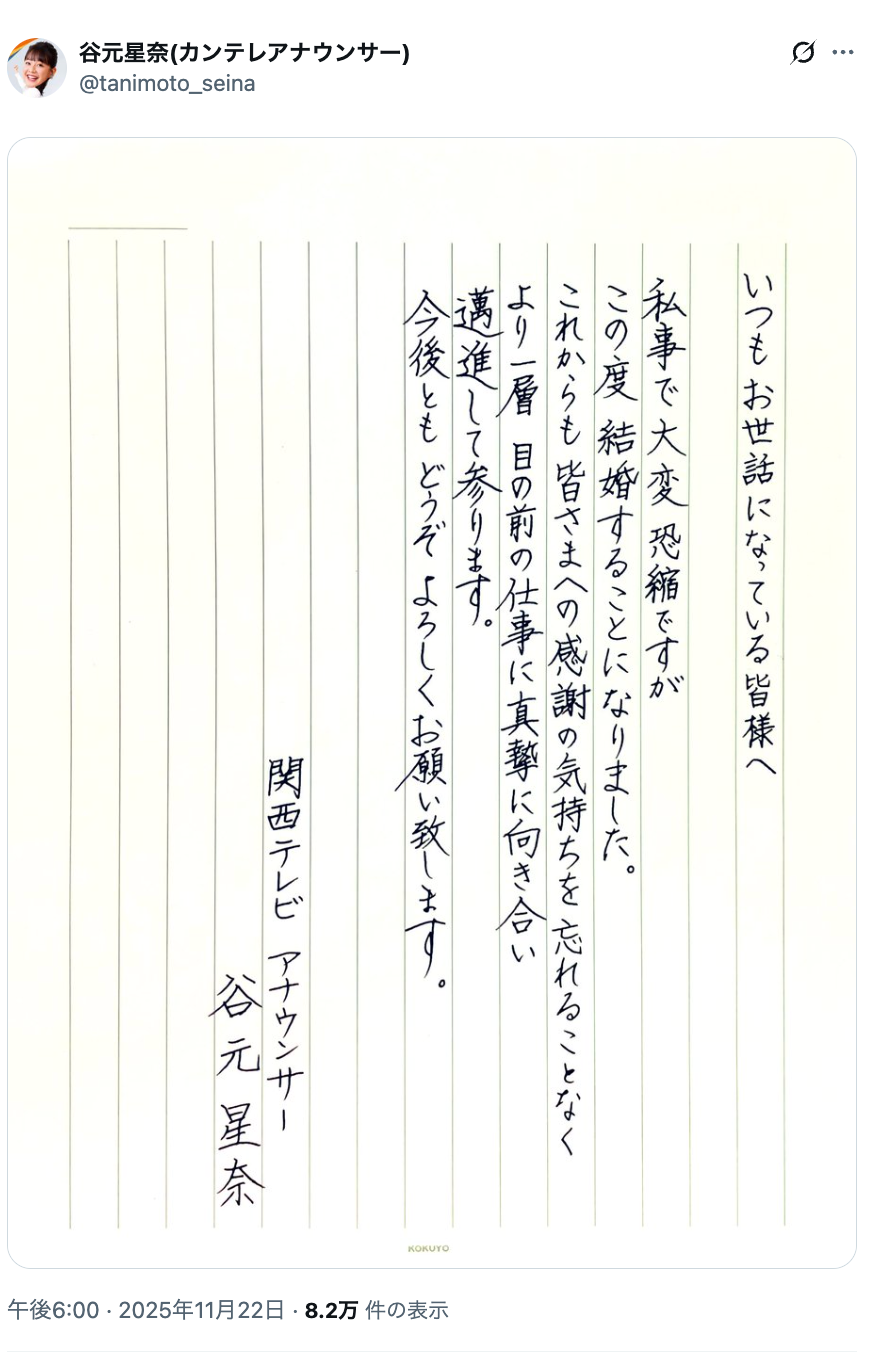 谷元星奈(カンテレアナウンサー)
@tanimoto_seina
いつもお世話になっている皆様へ
私事で大変恐縮ですが
この度 結婚することになりました。
これからも皆さまへの感謝の気持ちを忘れることなく
より一層 目の前の仕事に真摯に向き合い
邁進して参ります。
今後とも どうぞ よろしくお願い致します。
関西テレビ アナウンサー
谷元星奈
KOKUYO
午後6:00 · 2025年11月22日 · 8.2万 件の表示